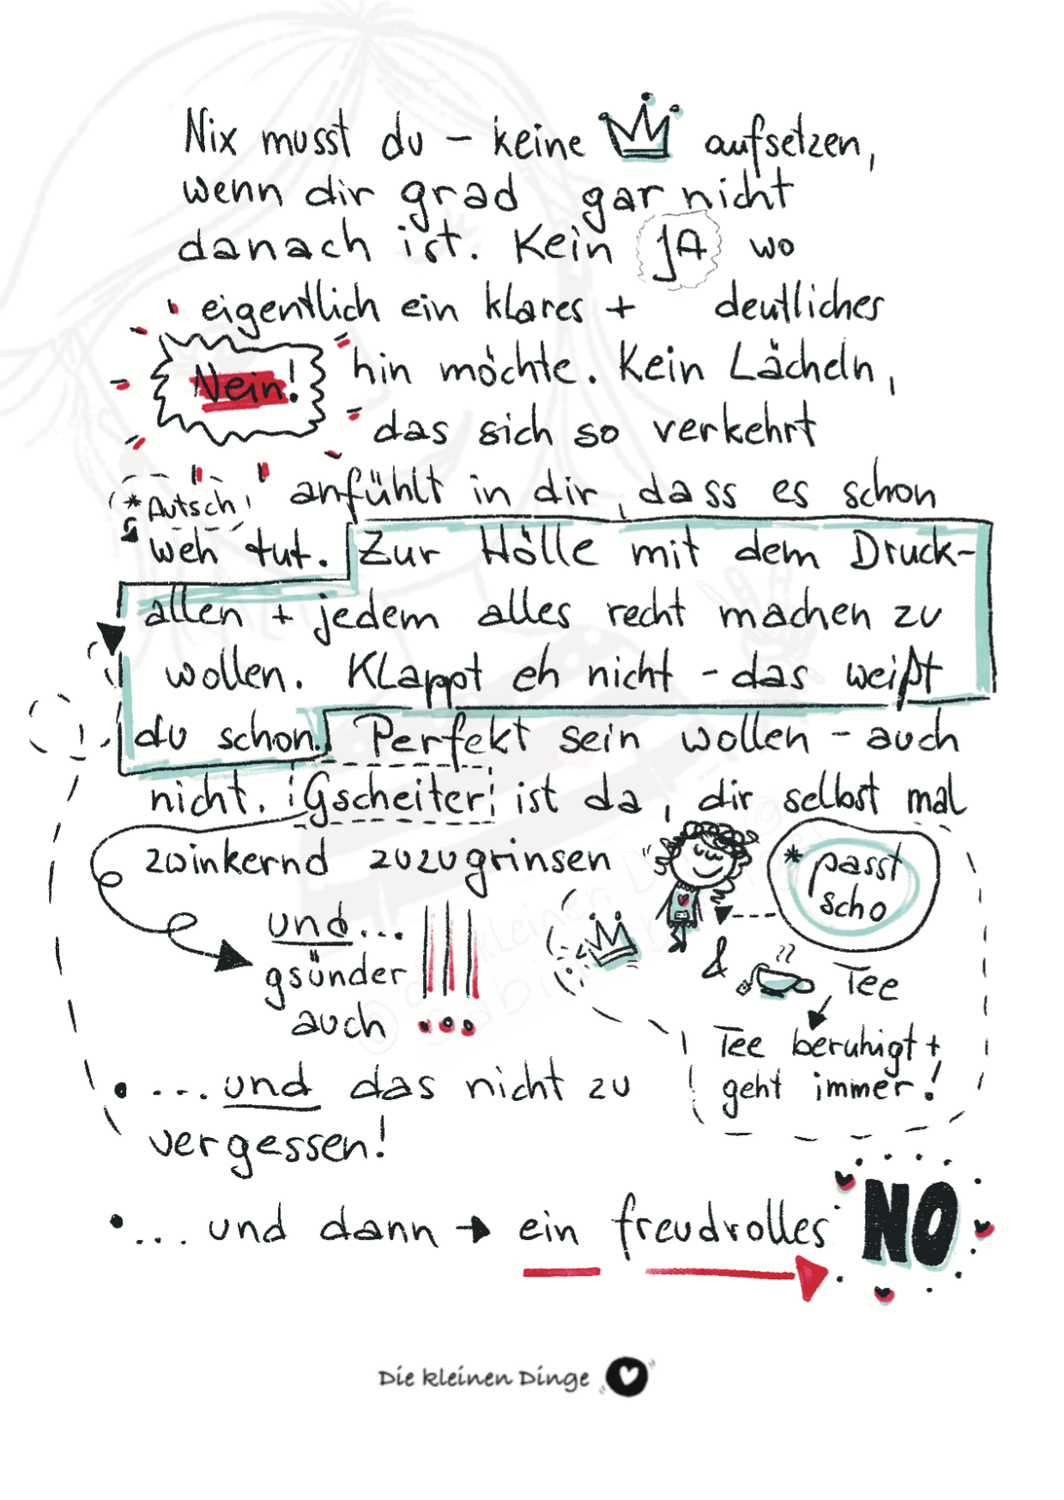 Nix musst du – keine aufsetzen,
wenn dir grad gar nicht
danach ist. Kein JA wo
eigentlich ein klares + deutliches
Nein! hin möchte. Kein Lächeln,
das sich so verkehrt
anfühlt in dir, dass es schon
* Autsch
weh tut. Zur Hölle mit dem Druck-
allen + jedem alles recht machen zu
wollen. Klappt eh nicht - das weißt
du schon. Perfekt sein wollen – auch
nicht. Gscheiter ist da, dir selbst mal
zwinkernd zuzugrinsen
* passt
scho
und...
gsünder
auch !!!
& Tee
Tee beruhigt +
geht immer!
• ... und das nicht zu
vergessen!
• ... und dann → ein freudvolles NO
Die kleinen Dinge